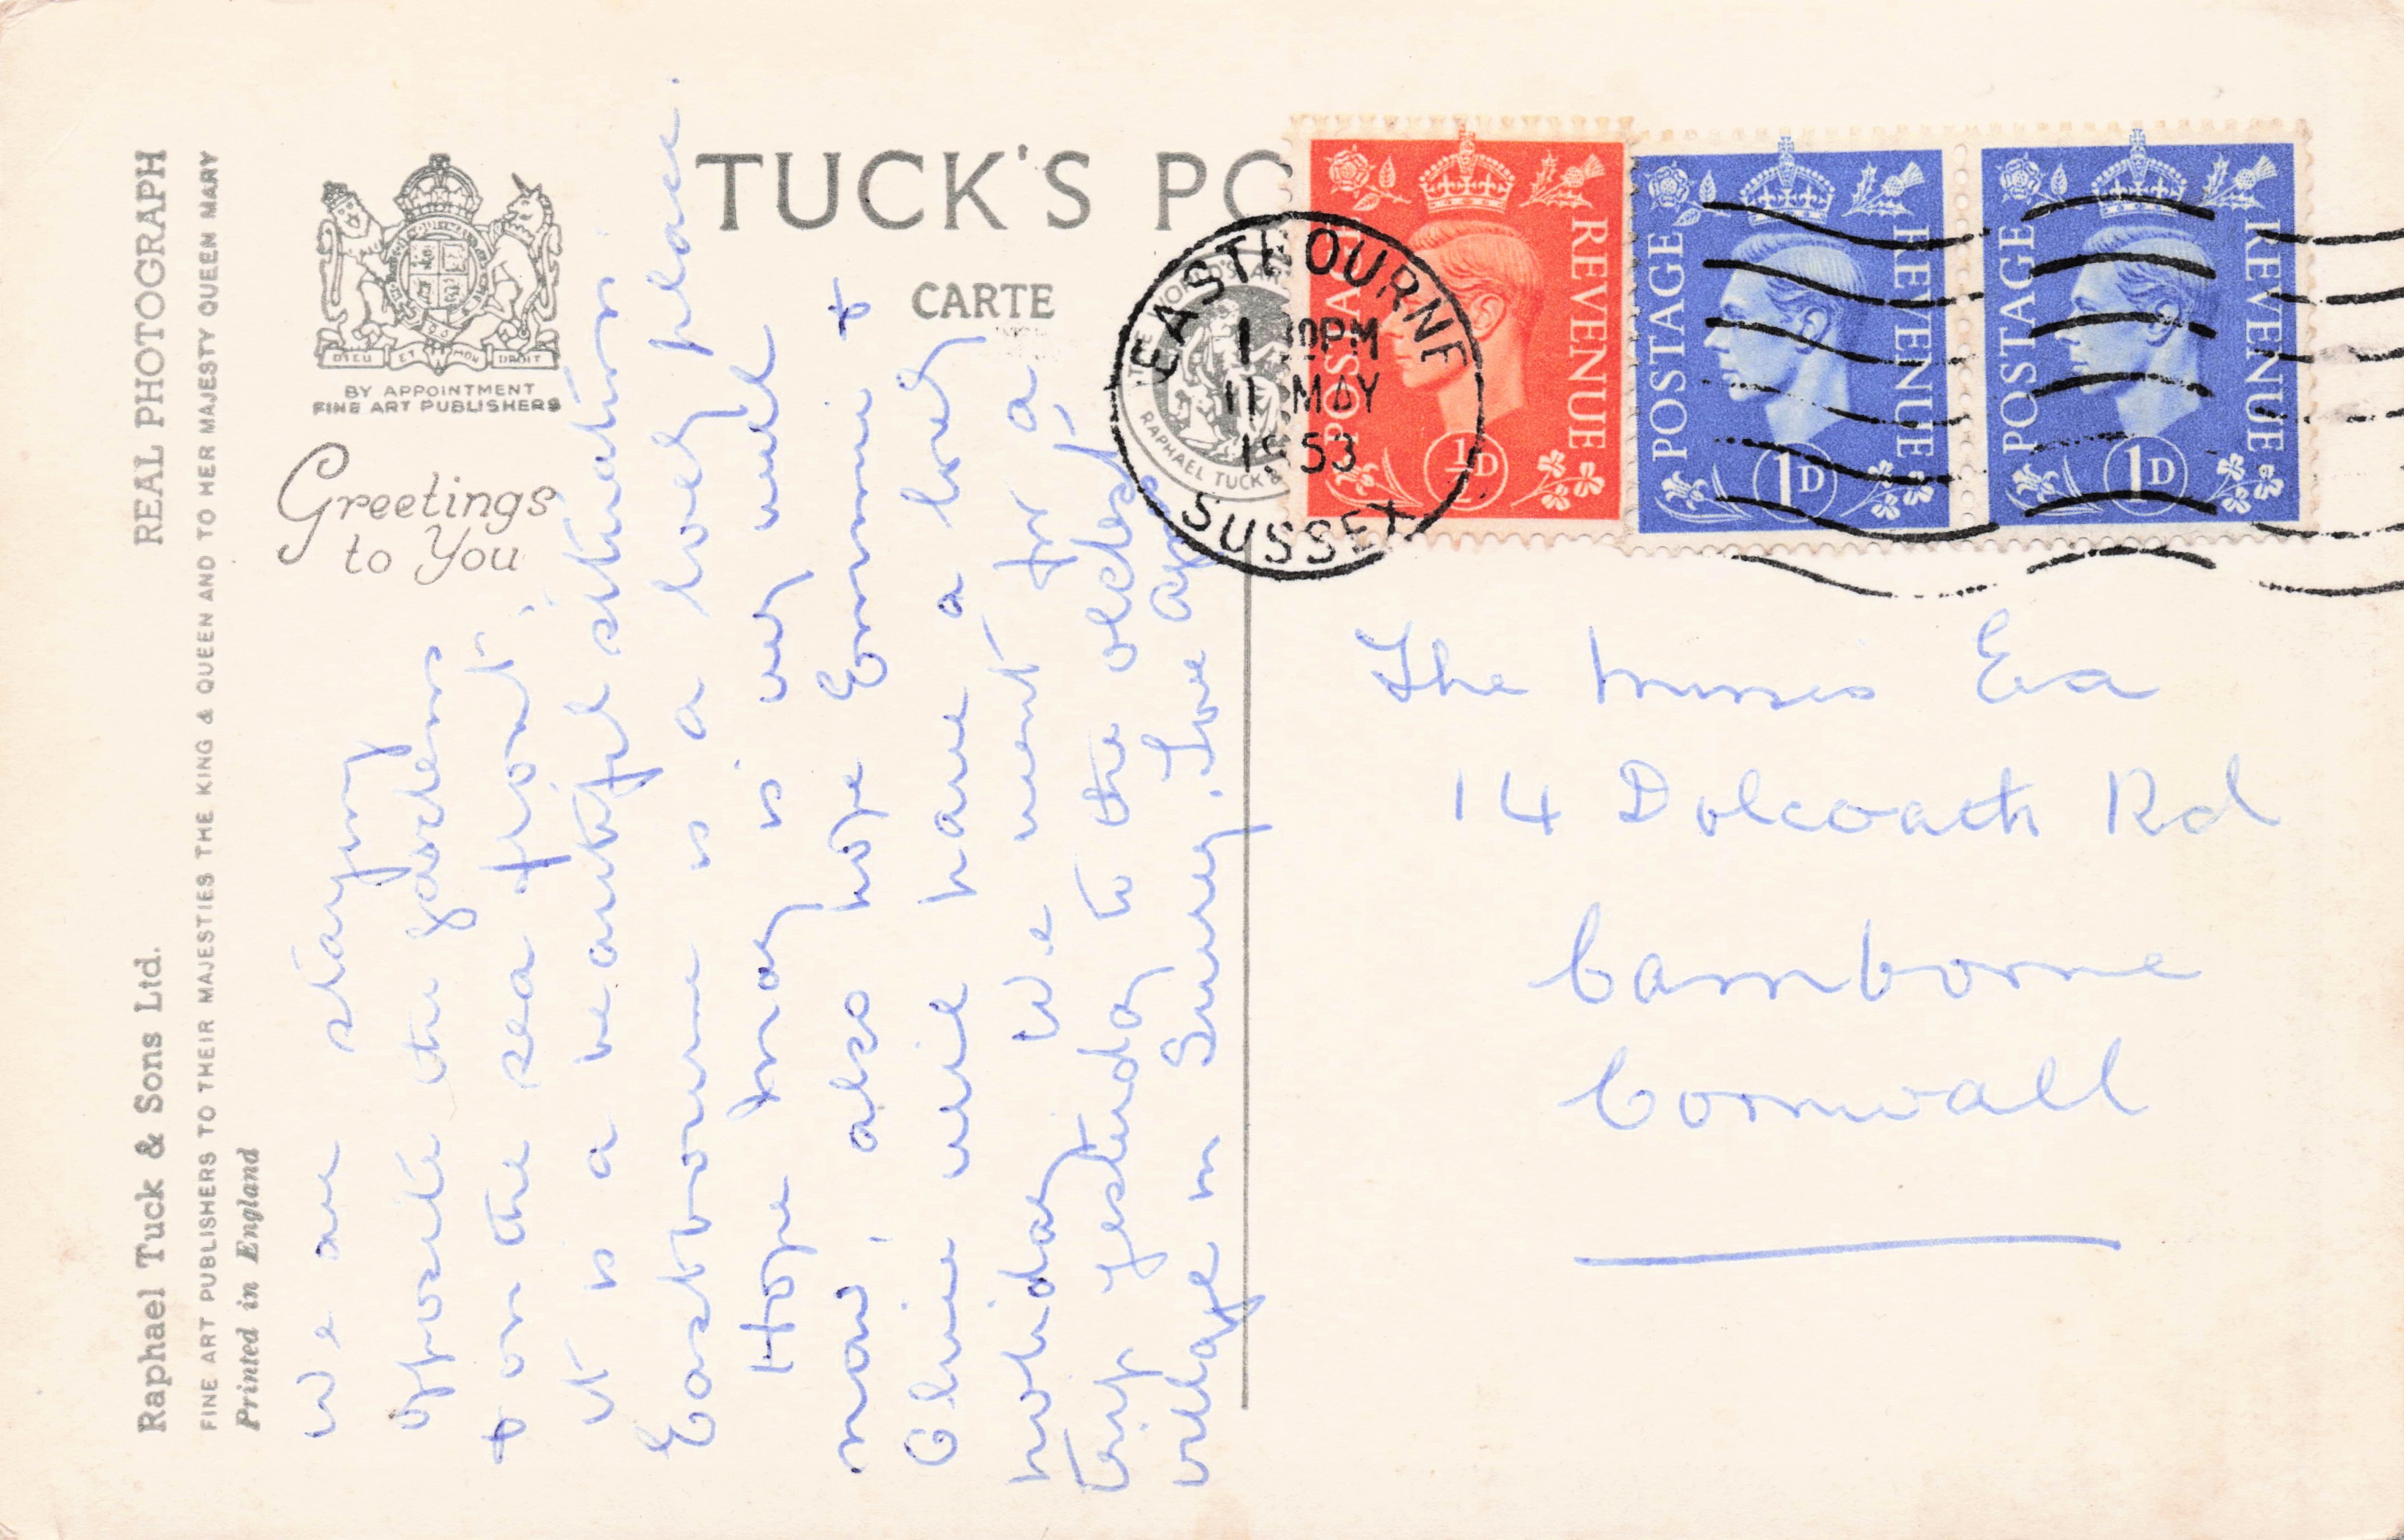 Raphael Tuck & Sons Ltd. REAL PHOTOGRAPH
FINE ART PUBLISHERS TO THEIR MAJESTIES THE KING & QUEEN AND TO HER MAJESTY QUEEN MARY
Printed in England
DIEU ET MON DROIT
BY APPOINTMENT
FINE ART PUBLISHERS
Greetings
to You
TUCK'S PO
CARTE
RAPHAEL TUCK &
We are staying
opposite the gardens
+ on the sea front.
it is a beautiful situation
Eastbourne is a lovely place.
Hope May is very well
now, also hope Emmie +
Olwie will have a lovely
holiday we went for a
trip yesterday to the oldest
village in Surrey. Love
EASTBOURNE
PM
11 MAY
1953
SUSSEX
POSTAGE REVENUE
½D
POSTAGE REVENUE
1D
POSTAGE REVENUE
1D
The Misses
14 Dolcoath Rd
Camborne
Cornwall